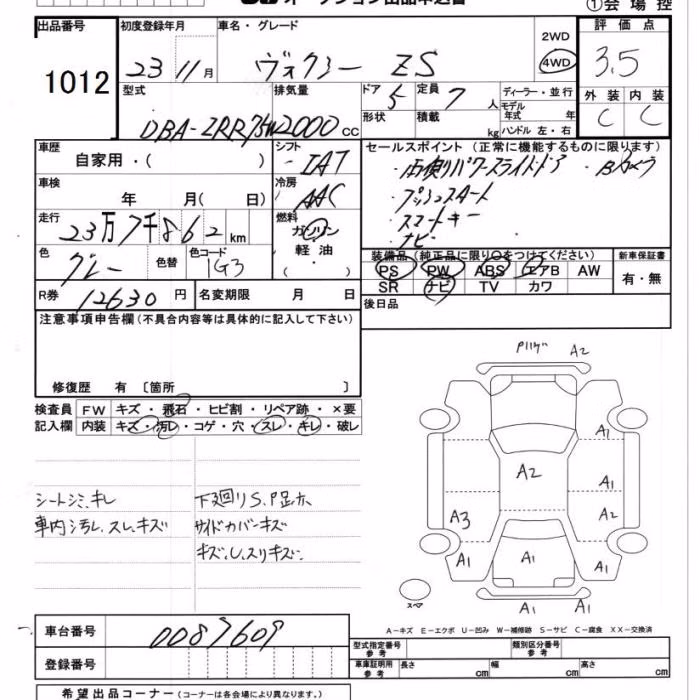 オークション出品申込書
①会場控
出品番号 1012
初度登録年月 23 11月
車名・グレード ヴォクシー ZS
2WD
4WD
評価点 3.5
外装 C 内装 C
型式 DBA-ZRR75W
排気量 2000 cc
ドア 5
定員 7 人
形状
積載 kg
ディーラー・並行
モデル年式 年
ハンドル 左・右
車歴 自家用・( )
シフト IAT
車検 年 月( 日)
冷房 AAC
走行 23万7千862 km
燃料 ガソリン
軽油
( )
色 グレー
色替
色コード 1G3
R券 12630 円
名変期限 月 日
セールスポイント(正常に機能するものに限ります)
・両側パワースライドドア ・Bカメラ
・プッシュスタート
・スマートキー
・ナビ
装備品(純正品に限り○をつけてください)
新車保証書
PS PW ABS エアB AW
SR ナビ TV カワ
有・無
後日品
注意事項申告欄(不具合内容等は具体的に記入して下さい)
修復歴 有 〔箇所 〕
検査員 FW キズ・飛石・ヒビ割・リペア跡・×要
記入欄 内装 キズ・汚レ・コゲ・穴・スレ・キレ・破レ
シートシミ、キレ
車内汚レ、スレ、キズ
下廻りS、P足ホ
サイドカバーキズ
キズ、U、スリキズ
A2
A1
A2
A1
A3
A2
A1
A1
A1
A1
A1
スペア
A－キズ E－エクボ U－凹み W－補修跡 S－サビ C－腐食 XX－交換済
車台番号 0089609
登録番号
型式指定番号 参考
類別区分番号 参考
車庫証明用 参考
長さ cm
幅 cm
高さ cm
希望出品コーナー(コーナーは各会場により異なります。)